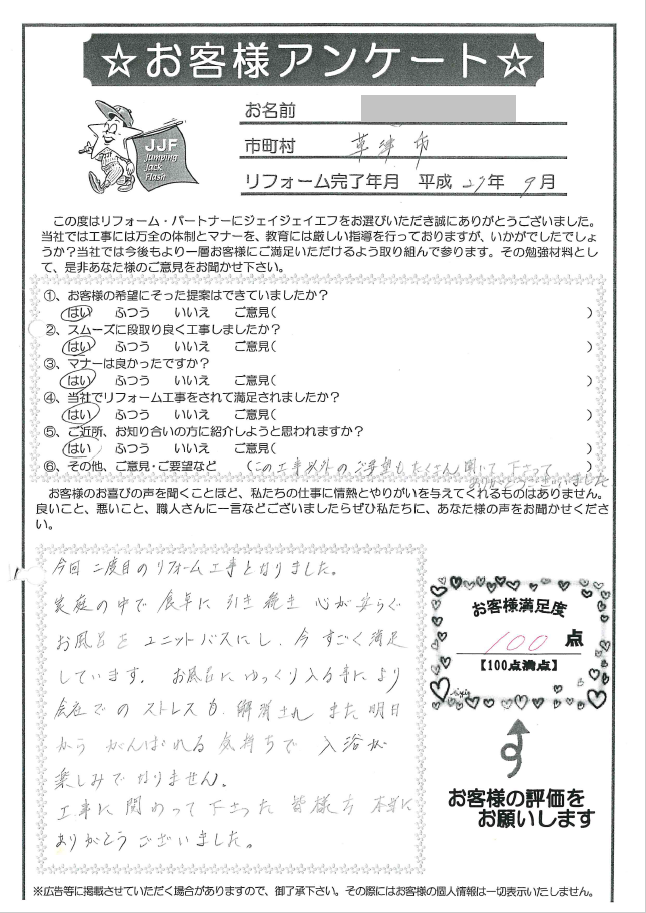 ☆お客様アンケート☆
JJF
Jumping
Jack
Flash
お名前
市町村 草津市
リフォーム完了年月 平成27年9月
この度はリフォーム・パートナーにジェイジェイエフをお選びいただき誠にありがとうございました。
当社では工事には万全の体制とマナーを、教育には厳しい指導を行っておりますが、いかがでしたでしょ
うか？当社では今後もより一層お客様にご満足いただけるよう取り組んで参ります。その勉強材料とし
て、是非あなた様のご意見をお聞かせ下さい。
①、お客様の希望にそった提案はできていましたか？
はい ふつう いいえ ご意見( )
②、スムーズに段取り良く工事しましたか？
はい ふつう いいえ ご意見( )
③、マナーは良かったですか？
はい ふつう いいえ ご意見( )
④、当社でリフォーム工事をされて満足されましたか？
はい ふつう いいえ ご意見( )
⑤、ご近所、お知り合いの方に紹介しようと思われますか？
はい ふつう いいえ ご意見( )
⑥、その他、ご意見・ご要望など (この工事以外のご要望もたくさん聞いて下さって
ありがとうございました)
お客様のお喜びの声を聞くことほど、私たちの仕事に情熱とやりがいを与えてくれるものはありません。
良いこと、悪いこと、職人さんに一言などございましたらぜひ私たちに、あなた様の声をお聞かせくださ
い。
今回二度目のリフォーム工事となりました。
家庭の中で 食卓に 引き続き 心が安らぐ
お風呂をユニットバスにし、今すごく満足
しています。お風呂にゆっくり入る事により
会社でのストレスも 解消され また明日
からがんばれる気持ちで 入浴が
楽しみでなりません。
工事に関わって下さった皆様方 本当に
ありがとうございました。
お客様満足度
100点
【100点満点】
お客様の評価を
お願いします
※広告等に掲載させていただく場合がありますので、御了承下さい。その際にはお客様の個人情報は一切表示いたしません。